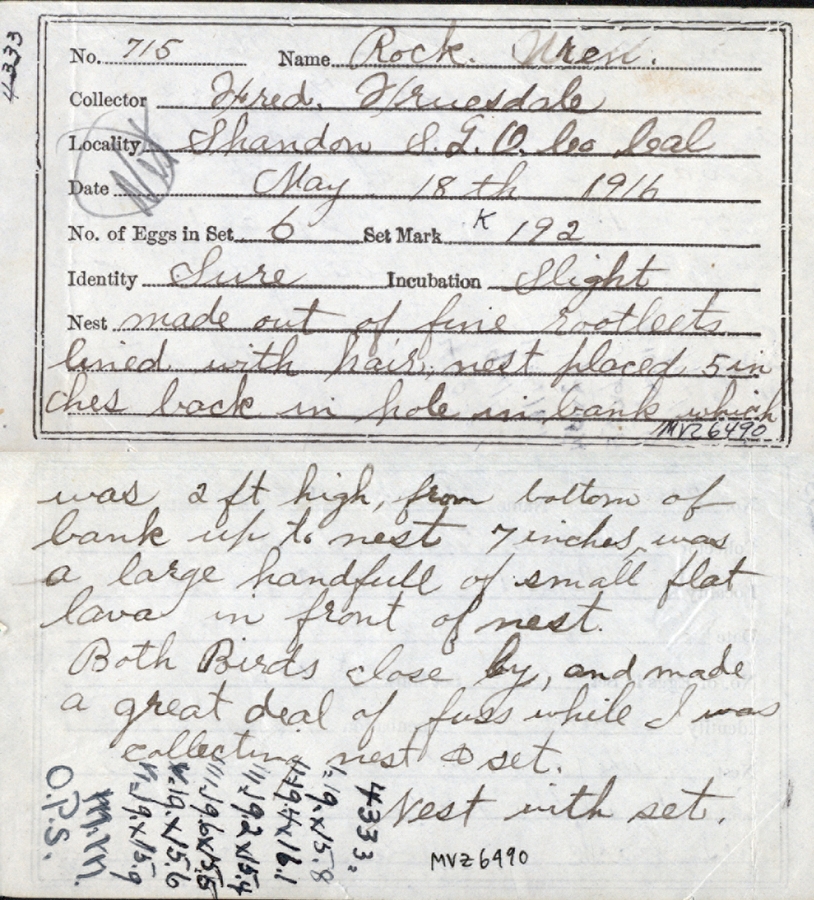 4333
No. 715 Name Rock. Wren.
Collector Fred. Truesdale
Locality Shandon S. L. O. Co Cal
Date May 18 th 1916
No. of Eggs in Set 6 Set Mark K 192
Identity Sure Incubation Slight
Nest made out of fine rootleets
lined with hair, nest placed 5 in
ches back in hole in bank which
MVZ 6490
was 2 ft high, from bottom of
bank up to nest 7 inches, was
a large handfull of small flat
lava in front of nest.
Both Birds close by, and made
a great deal of fuss while I was
collecting nest & set.
Nest with set.
4333:
19. x 15.8
19.4 x 16.1
19.2 x 15.4
19.6 x 15.5
19. x 15.6
19. x 15.9
O.P.S.
MVZ 6490